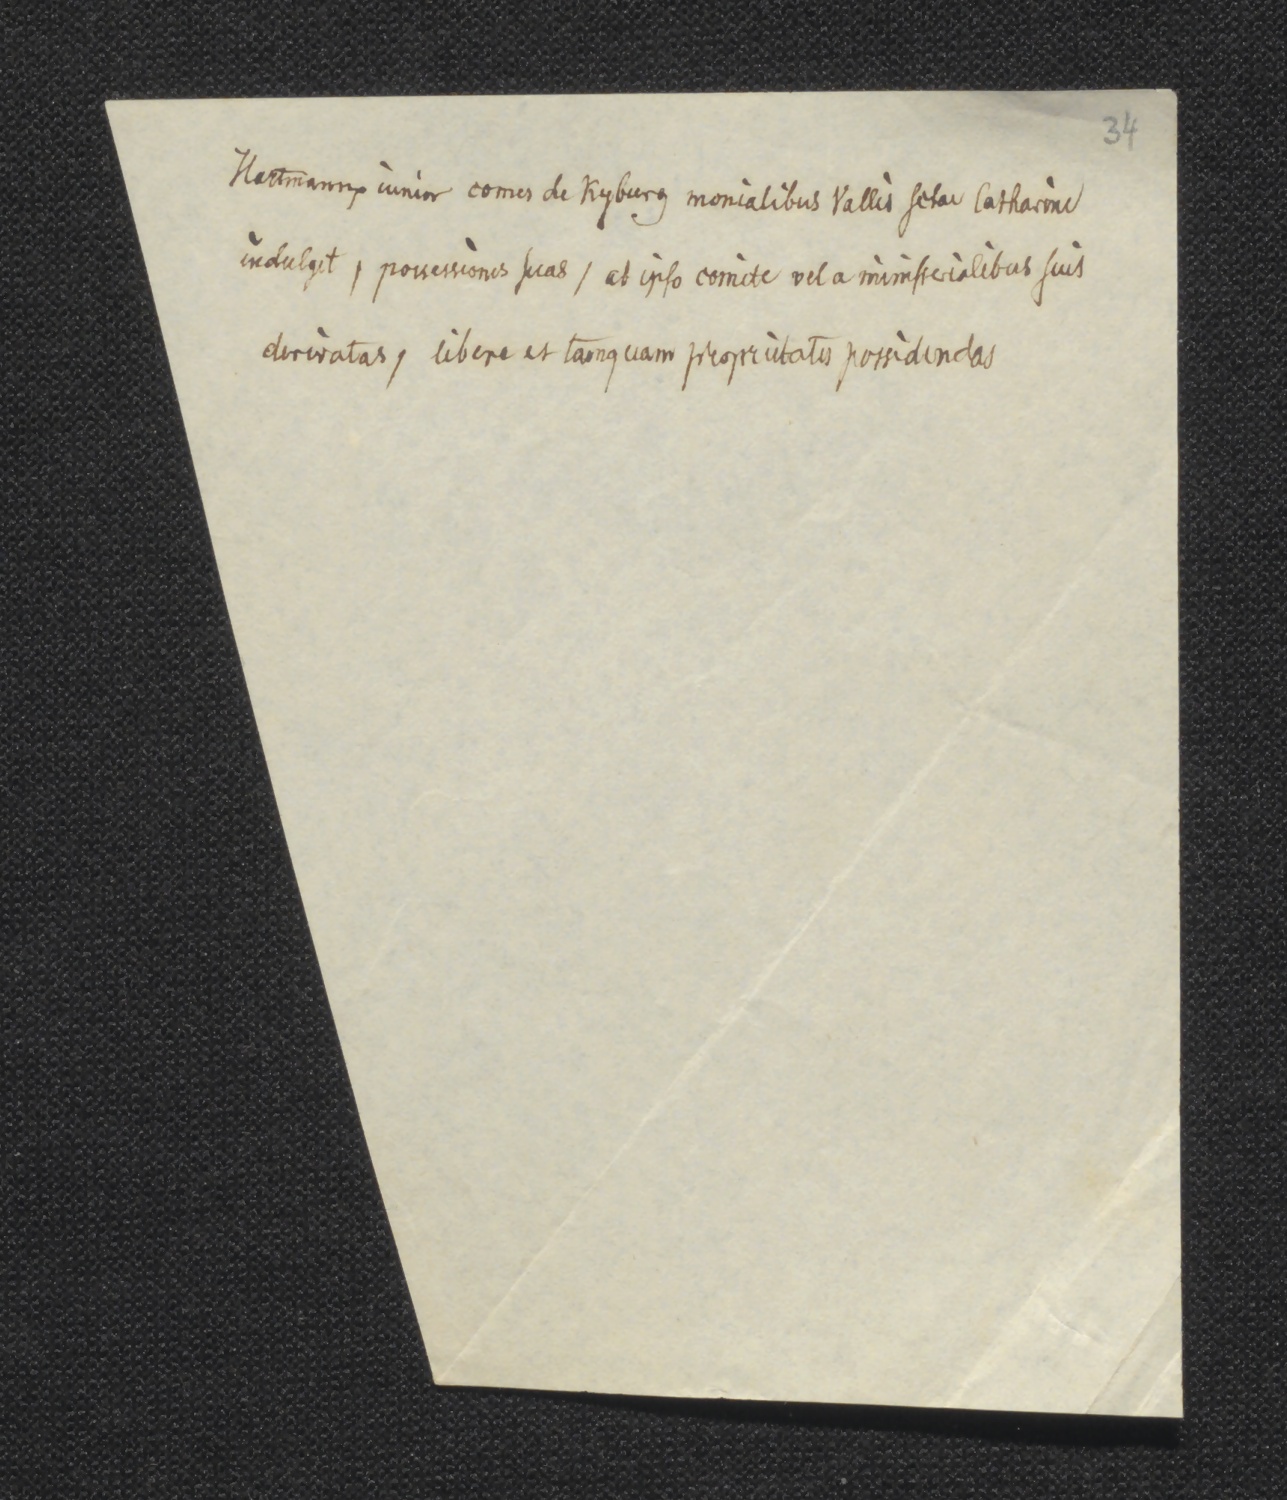 34
Hartmannꝰ iunior comes de Kyburg monialibus Vallis sctae Catharine
indulget, possessiones suas, ab ipso comite vel a ministerialibus suis
derivatas, libere et tamquam proprietates possidendas